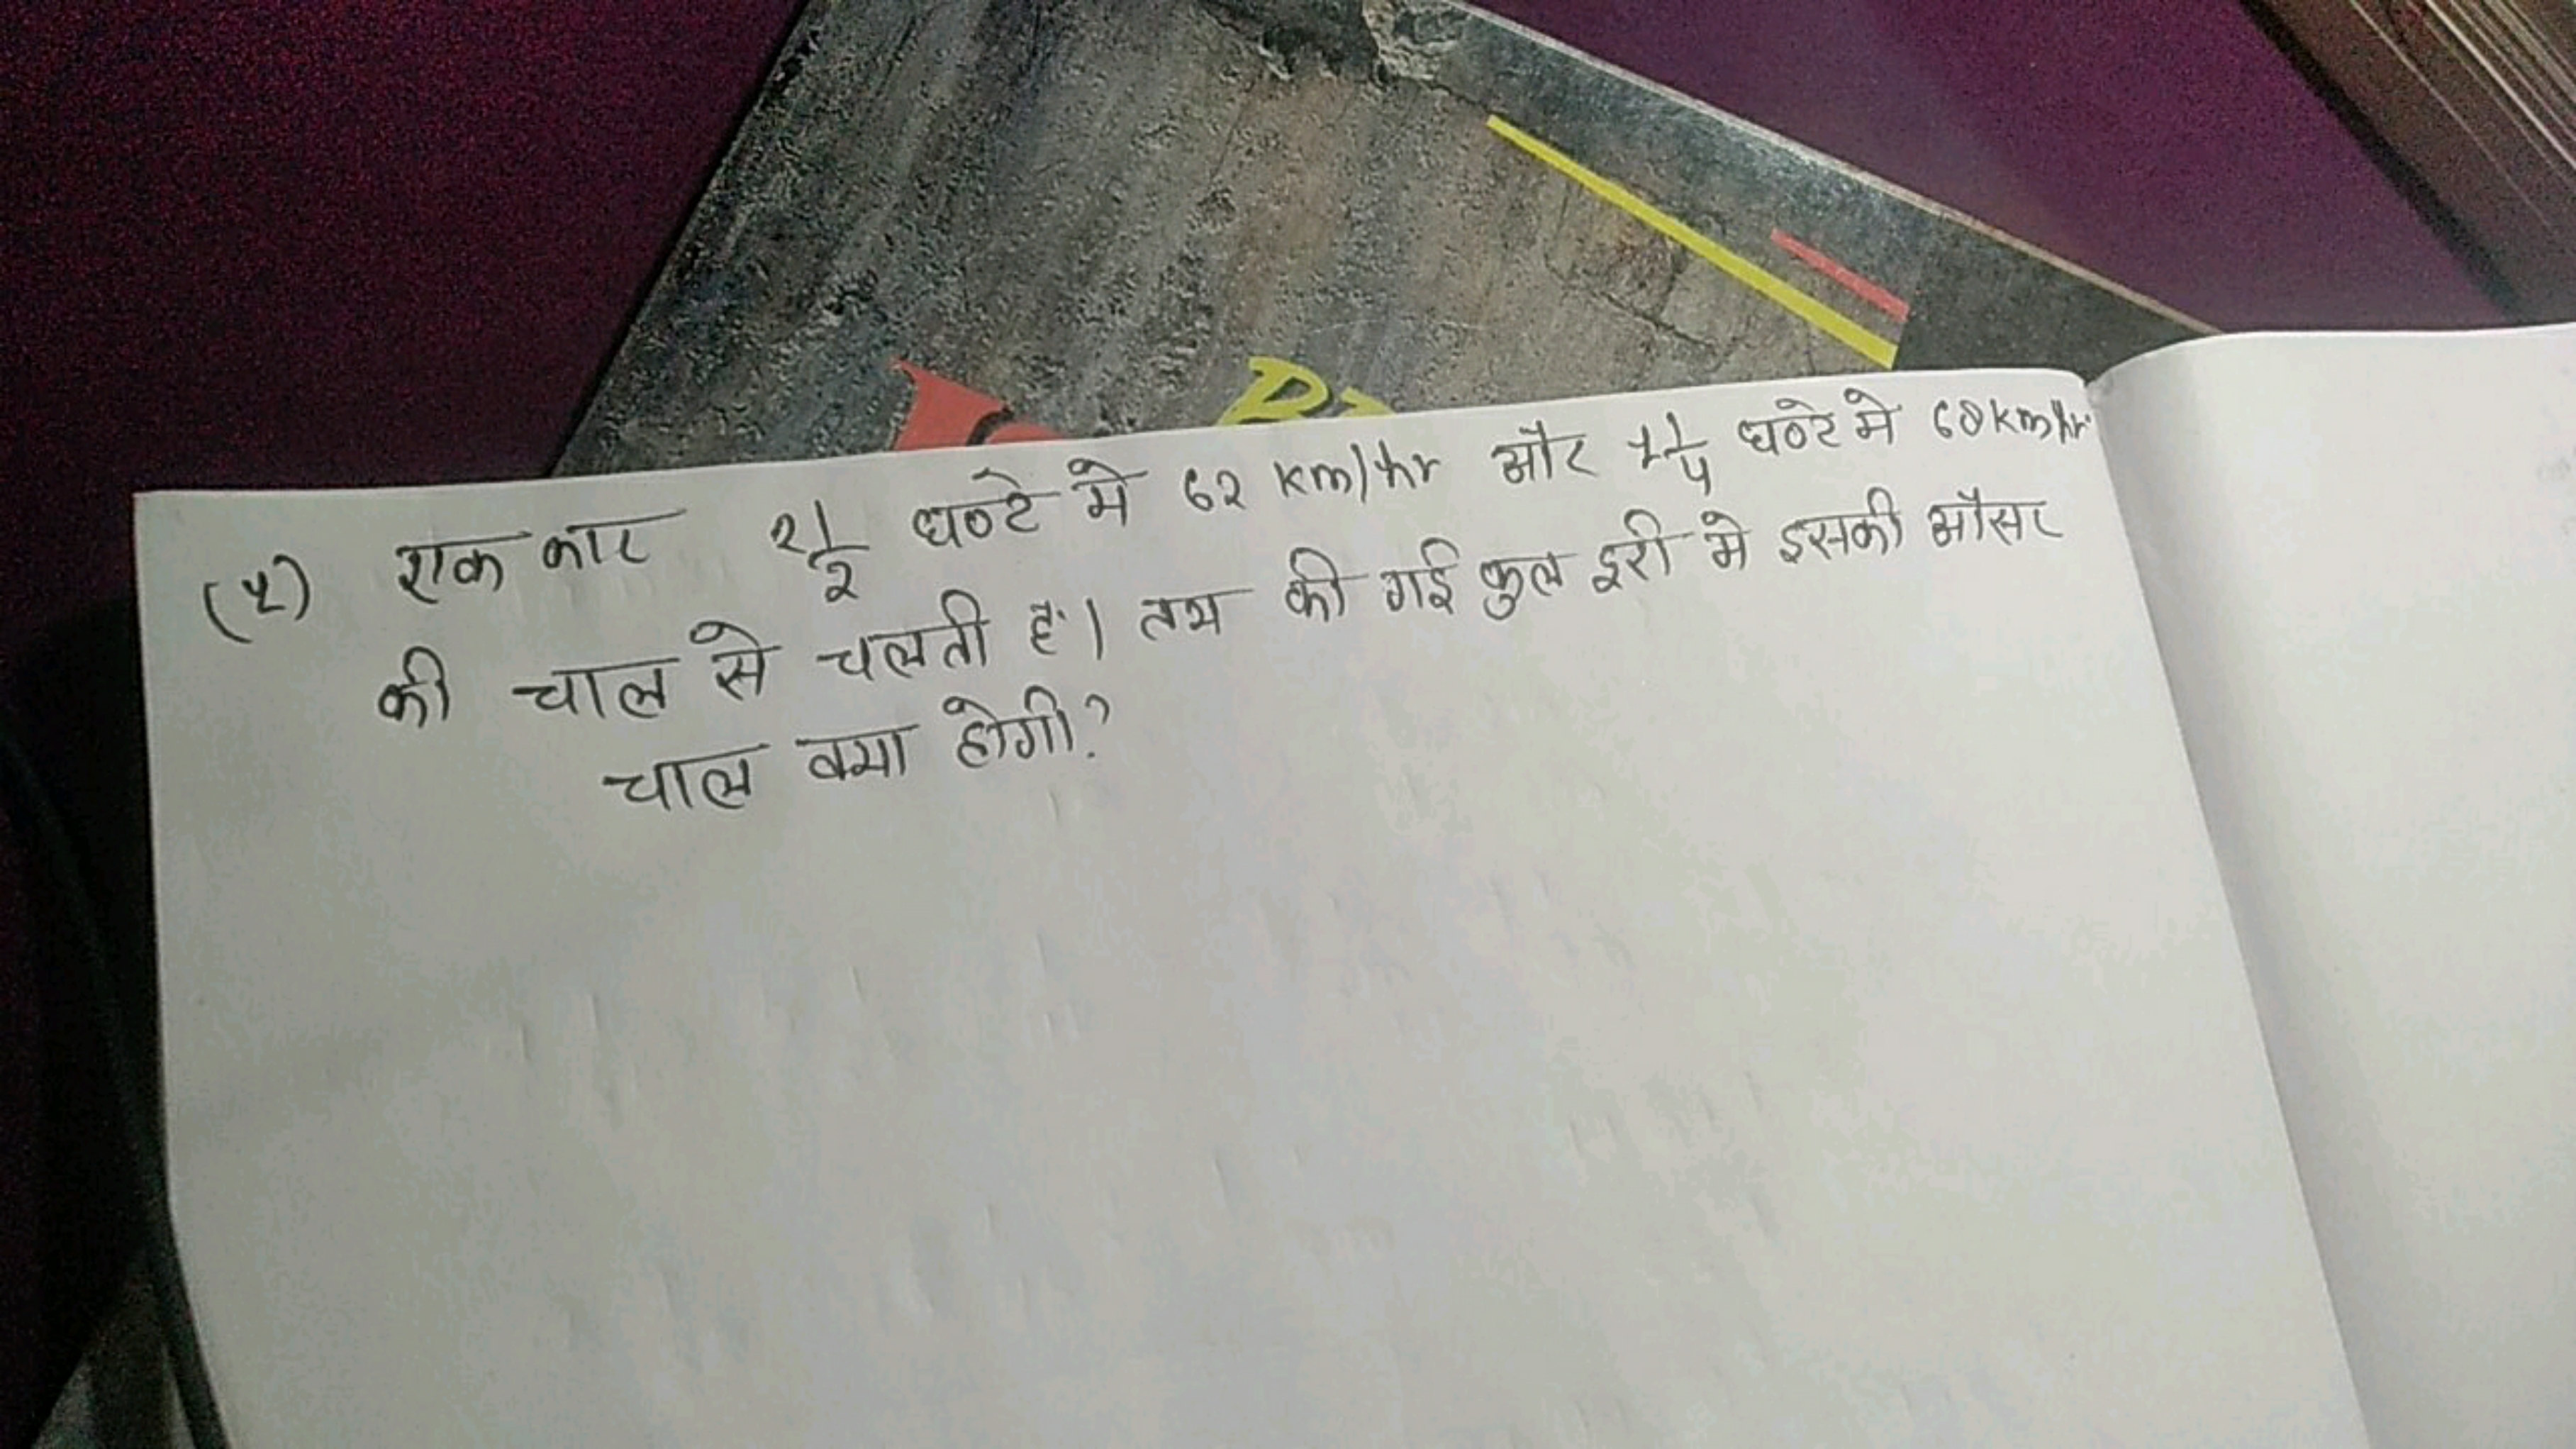 (५) एक कार 2 1/2 घण्टे मे 62 km/hr और 1 1/4 घण्टे मे 68 km/hr
की चाल से चलती है। तय की गई कुल दूरी मे इसकी औसत
चाल क्या होगी?